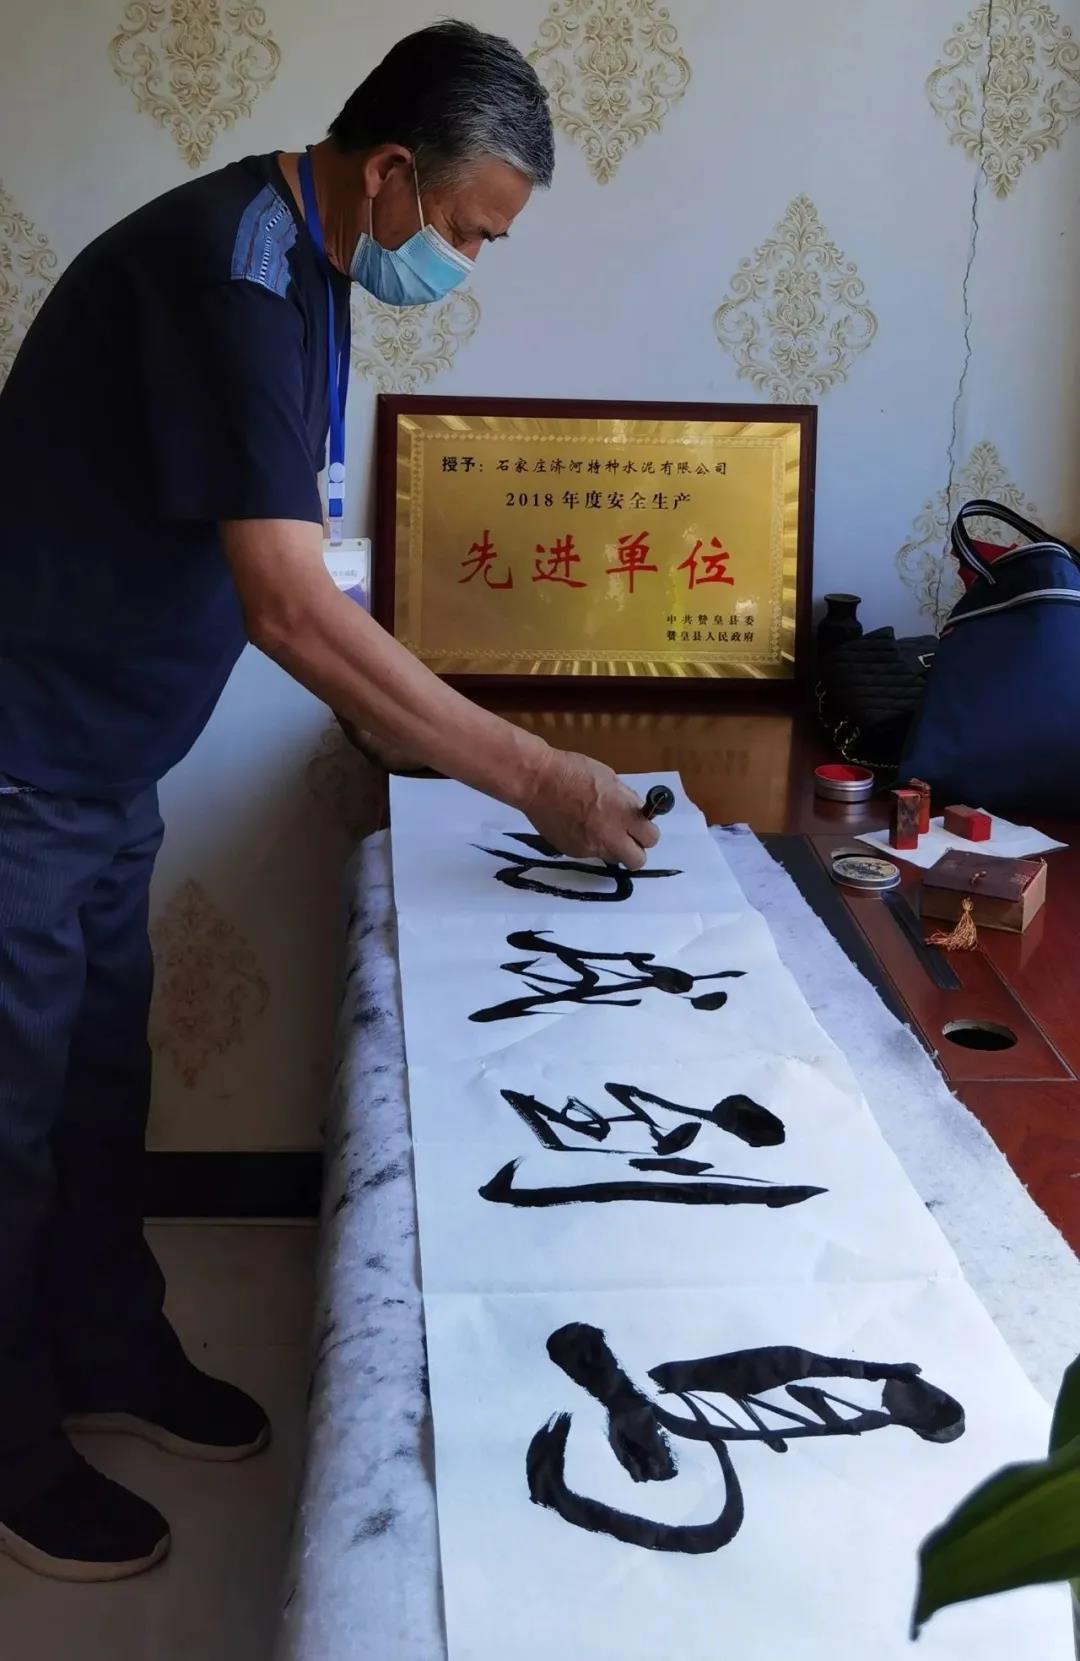 授予：石家庄济河特种水泥有限公司
2018年度安全生产
先进单位
中共赞皇县委
赞皇县人民政府
馬到成功